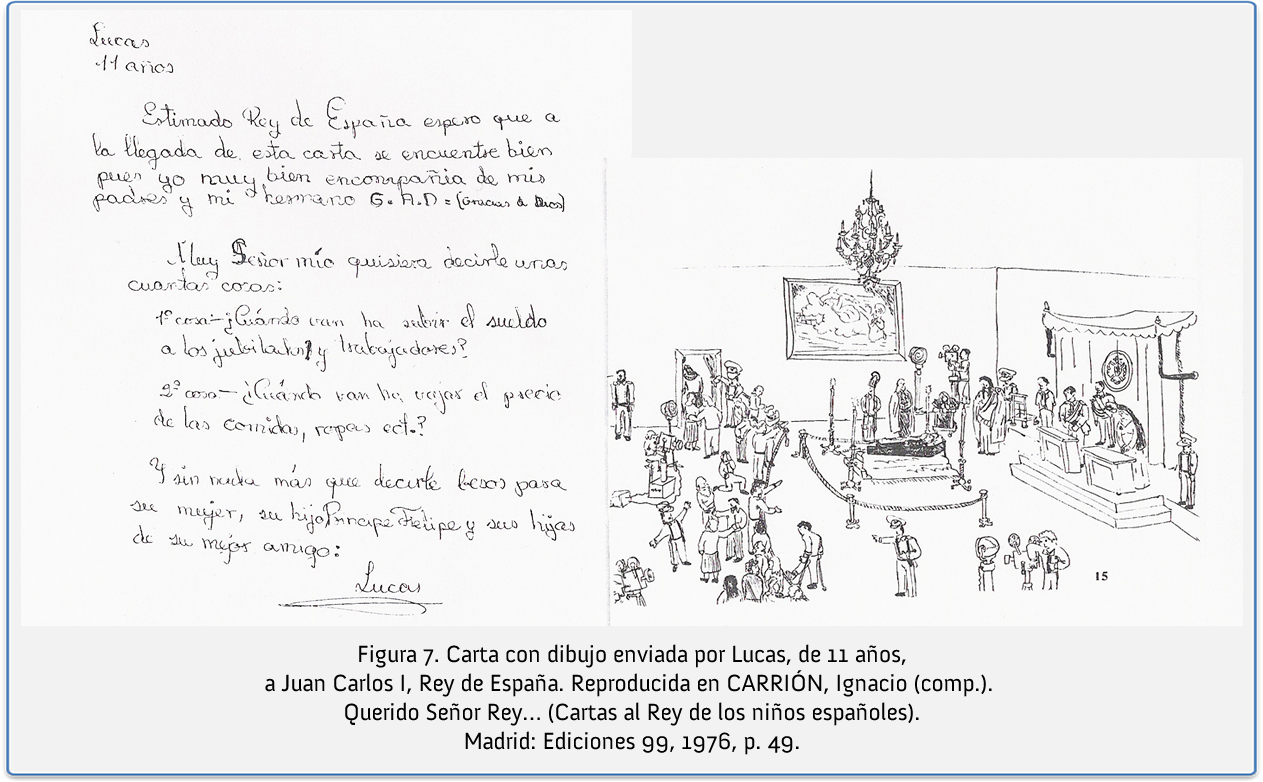 Lucas
11 años
Estimado Rey de España espero que a
la llegada de esta carta se encuentre bien
pues yo muy bien encompañia de mis
padres y mi hermano G.A.D = (Gracias a Dios)
Muy Señor mío quisiera decirle unas
cuantas cosas:
1ª cosa-¿Cuándo van ha subir el sueldo
a los jubilados y trabajadores?
2ª cosa-¿Cuándo van ha vajar el precio
de las comidas, ropas ect.?
Y sin nada más que decirle besos para
su mujer, su hijo Principe Felipe y sus hijas
de su mejor amigo:
Lucas
15
Figura 7. Carta con dibujo enviada por Lucas, de 11 años,
a Juan Carlos I, Rey de España. Reproducida en CARRIÓN, Ignacio (comp.).
Querido Señor Rey... (Cartas al Rey de los niños españoles).
Madrid: Ediciones 99, 1976, p. 49.